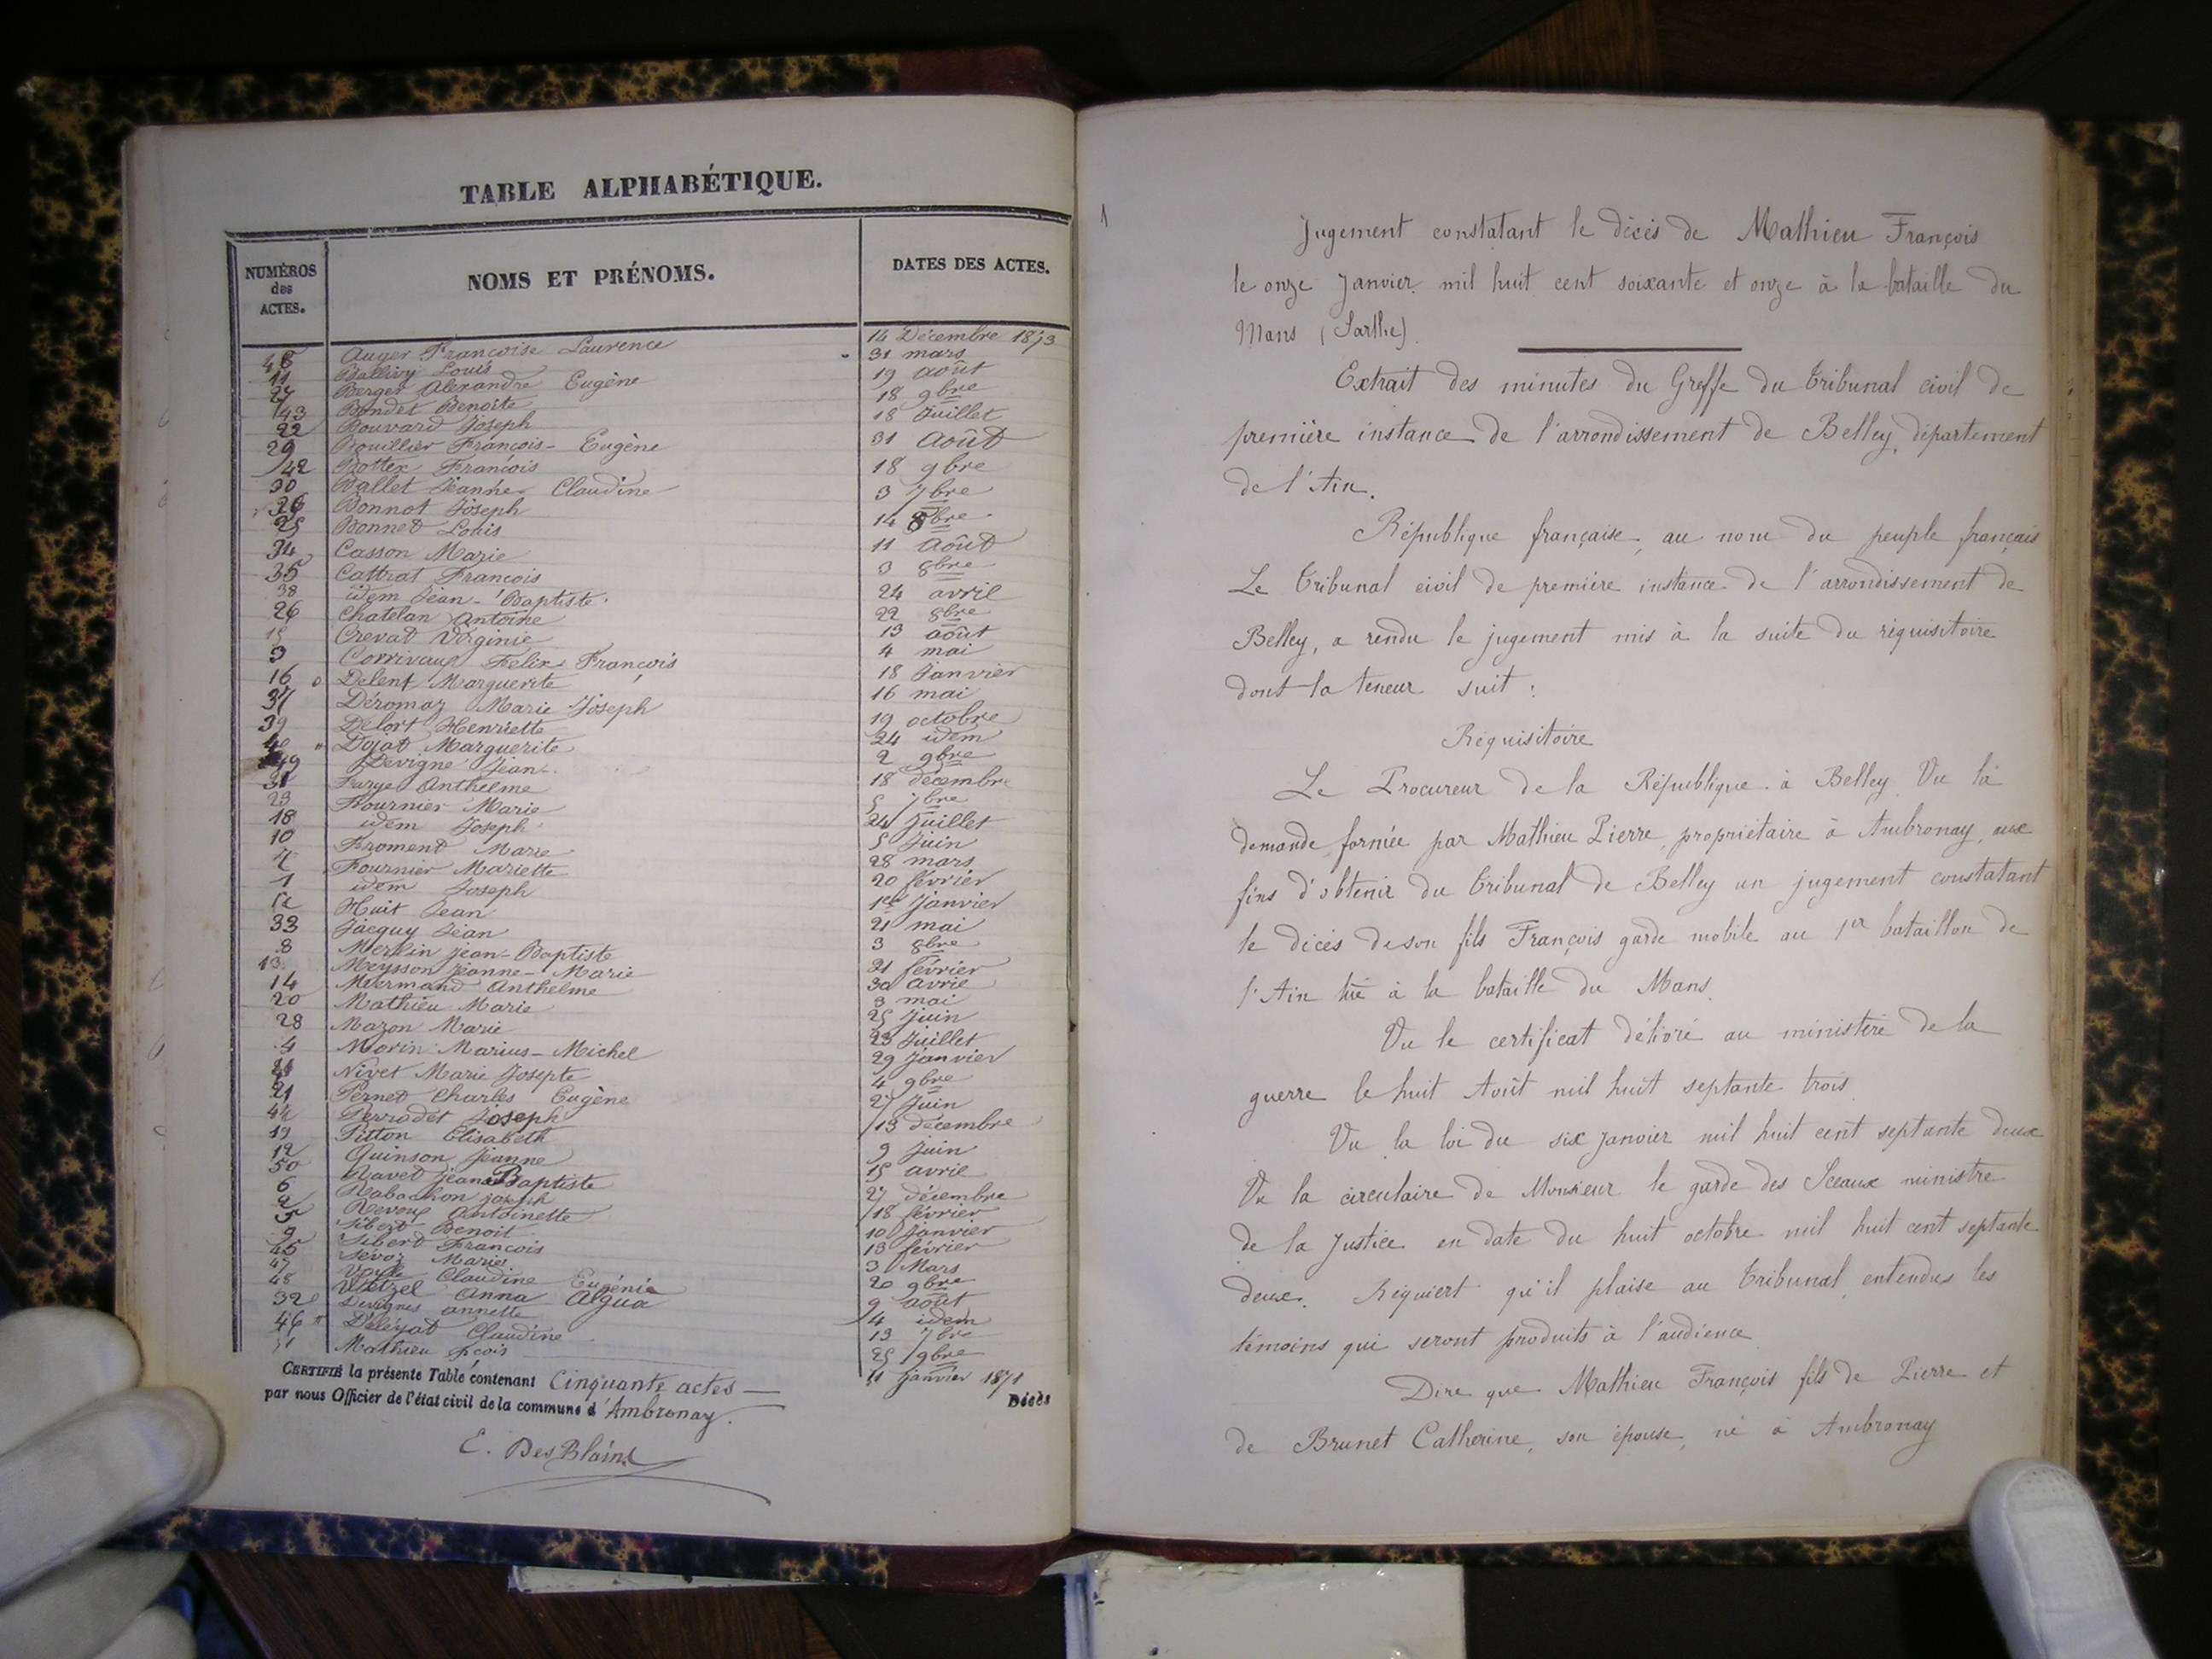 TABLE ALPHABÉTIQUE.
NUMÉROS des ACTES. NOMS ET PRÉNOMS. DATES DES ACTES.
48 Auger Françoise Laurence 14 Décembre 1873
11 Ballivy Louis 31 mars
27 Berger Alexandre Eugène 19 août
43 Bondet Benoite 18 9bre
22 Bouvard Joseph 18 Juillet
29 Bouillier François-Eugène 31 Août
42 Bottex François 18 9bre
30 Ballet Jeanne Claudine 3 7bre
36 Bonnot Joseph 14 8bre
25 Bonnet Louis 11 Août
34 Casson Marie 3 8bre
35 Cattrat François 24 avril
38 idem Jean-Baptiste 22 8bre
26 Chatelan Antoine 13 août
15 Crevat Virginie 4 mai
3 Corrivaux Felix François 18 Janvier
16 Delent Marguerite 16 mai
37 Déromaz Marie Joseph 19 octobre
39 Delort Henriette 24 idem
40 Dojat Marguerite 2 9bre
49 Devigne Jean 18 décembre
31 Farge Anthelme 5 7bre
23 Fournier Marie 24 Juillet
18 idem Joseph 5 Juin
10 Froment Marie 28 mars
7 Fournier Mariette 20 février
1 idem Joseph 1er Janvier
17 Huit Jean 21 mai
33 Jacquy Jean 3 8bre
8 Merlin Jean-Baptiste 21 février
13 Meysson Jeanne-Marie 30 avril
14 Mermand Anthelme 3 mai
20 Mathieu Marie 25 Juin
28 Mazon Marie 23 Juillet
4 Morin Marius-Michel 29 Janvier
41 Nivet Marie Josepte 4 9bre
21 Pernet Charles Eugène 27 Juin
44 Perrodet Joseph 13 décembre
19 Pitton Elisabeth 9 Juin
12 Quinson Jeanne 15 avril
50 Ravet Jean Baptiste 27 décembre
6 Joseph 18 février
2 Revoux Antoinette 10 Janvier
5 Sibert Benoit 13 février
9 Sibert François 3 Mars
45 Sevoz Marie 20 9bre
47 Claudine Eugénie 9 août
48 Anna 4 idem
32 Devignes annette 13 7bre
46 Claudine 25 9bre
51 Mathieu fçois 11 Janvier 1871
CERTIFIÉ la présente Table contenant Cinquante actes
Décès
par nous Officier de l'état civil de la commune d'Ambronay.
E. DesBlains
1
Jugement constatant le décès de Mathieu François
le onze Janvier mil huit cent soixante et onze à la bataille du
Mans (Sarthe).
Extrait des minutes du Greffe du Tribunal civil de
première instance de l'arrondissement de Belley, département
de l'Ain.
République française, au nom du peuple français
Le Tribunal civil de première instance de l'arrondissement de
Belley, a rendu le jugement mis à la suite du réquisitoire
dont la teneur suit :
Réquisitoire
Le Procureur de la République à Belley Vu la
demande formée par Mathieu Pierre, propriétaire à Ambronay, aux
fins d'obtenir du Tribunal de Belley un jugement constatant
le décès de son fils François garde mobile au 1er bataillon de
l'Ain tué à la bataille du Mans.
Vu le certificat délivré au ministère de la
guerre le huit Août mil huit septante trois
Vu la loi du six Janvier mil huit cent septante deux
Vu la circulaire de Monsieur le garde des Sceaux ministre
de la Justice en date du huit octobre mil huit cent septante
deux. Requiert qu'il plaise au Tribunal, entendus les
témoins qui seront produits à l'audience
Dire que Mathieu François fils de Pierre et
de Brunet Catherine, son épouse, né à Ambronay